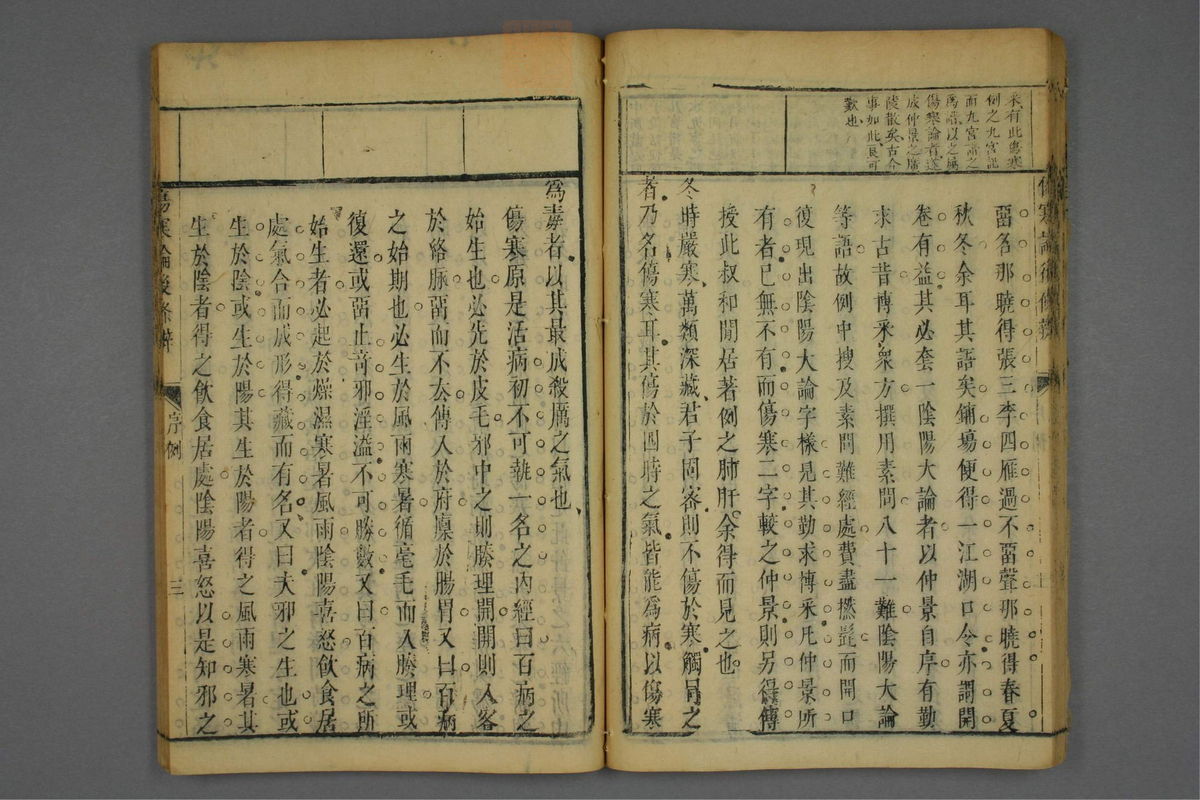 来有此惠寒
例之九宮說
而九宮諸之
爲語以之屬
傷寒論者遂
成仲景之廣
陵散矣古今
事如此良可
歎也
傷寒論後條辨
畱名那曉得張三李四雁過不畱聲那曉得春夏
秋冬余耳其語矣鋪場便得一江湖口今亦謂開
卷有益其必套一陰陽大論者以仲景自序有勤
求古昔博采衆方撰用素問八十一難陰陽大論
等語故例中搜及素問難經處費盡撚髭而開口
復現出陰陽大論字樣見其勤求博采凡仲景所
有者已無不有而傷寒二字較之仲景則另得傳
授此叔和閒居著例之肺肝余得而見之也
冬時嚴寒萬類深藏君子固密則不傷於寒觸冒之
者乃名傷寒耳其傷於四時之氣皆能爲病以傷寒
爲毒者以其最成殺厲之氣也
傷寒原是活病初不可執一名之內經曰百病之
始生也必先於皮毛邪中之則腠理開開則入客
於絡脉畱而不去傳入於府廩於腸胃又曰百病
之始期也必生於風雨寒暑循毫毛而入腠理或
復還或畱止奇邪淫溢不可勝數又曰百病之所
始生者必起於燥濕寒暑風雨陰陽喜怒飲食居
處氣合而成形得藏而有名又曰夫邪之生也或
生於陰或生於陽其生於陽者得之風雨寒暑其
生於陰者得之飲食居處陰陽喜怒以是知邪之
傷寒論後條辨
序例
三